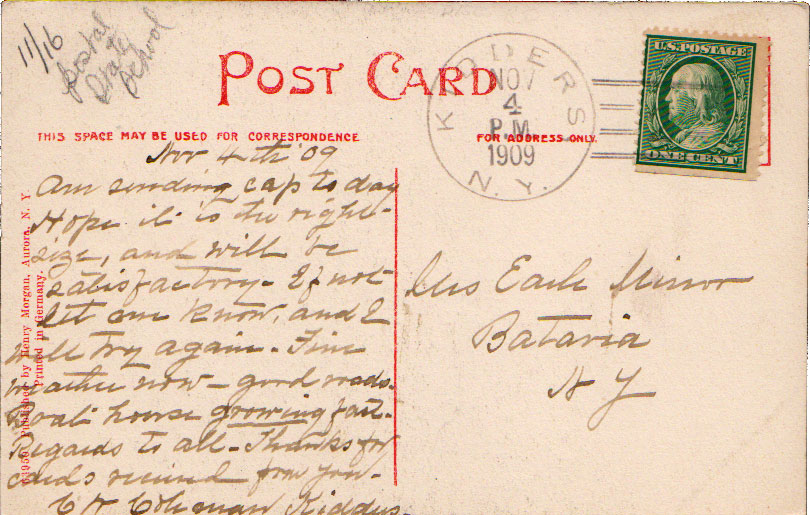 11/16
Postal
State
School
POST CARD
THIS SPACE MAY BE USED FOR CORRESPONDENCE
FOR ADDRESS ONLY.
KIDDERS
NOV
4
P.M.
1909
N.Y.
U.S. POSTAGE
ONE CENT
Nov 4th '09
Am sending cap to day
Hope it is the right
size, and will be
satisfactory - If not
let me know, and I
will try again. Fine
weather now - good roads.
Boat house growing fast.
Regards to all - Thanks for
cards received from you.
Coleman Kidders.
Mrs Earle Minor
Batavia
N Y
Published by Henry Morgan, Aurora, N. Y.
Printed in Germany.